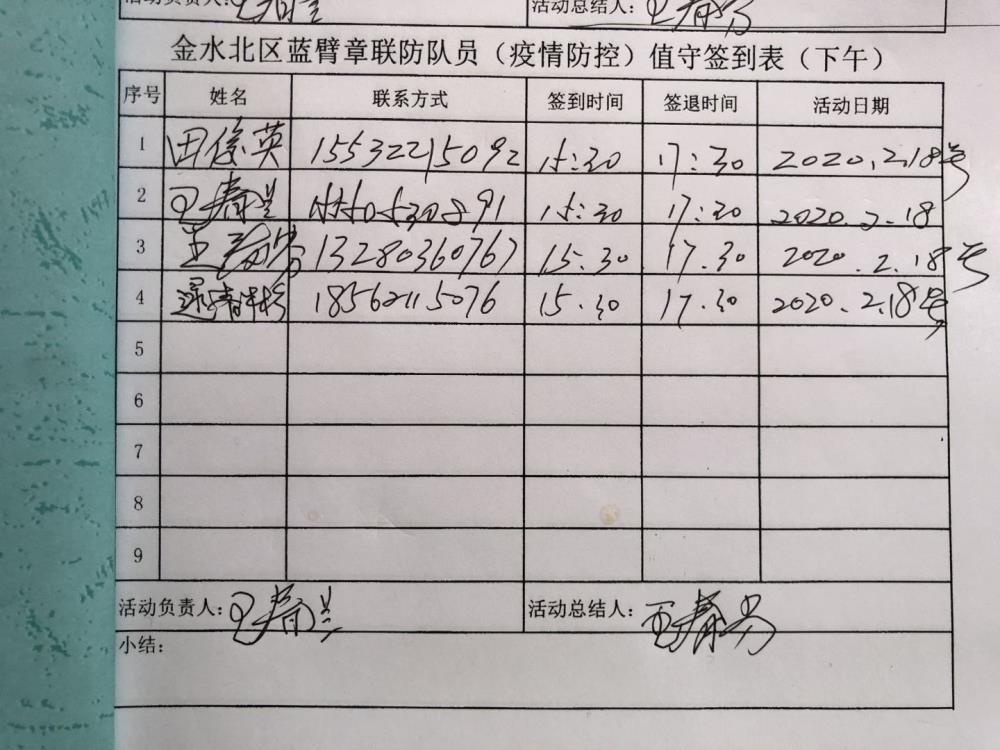 活动负责人: 活动总结人:
金水北区蓝臂章联防队员（疫情防控）值守签到表（下午）
序号 姓名 联系方式 签到时间 签退时间 活动日期
1 田俊英 15532215092 15:30 17:30 2020.2.18号
2 15:30 17:30 2020.2.18
3 13280360767 15.30 17.30 2020.2.18号
4 18562115076 15.30 17.30 2020.2.18号
5
6
7
8
9
活动负责人: 活动总结人:
小结: